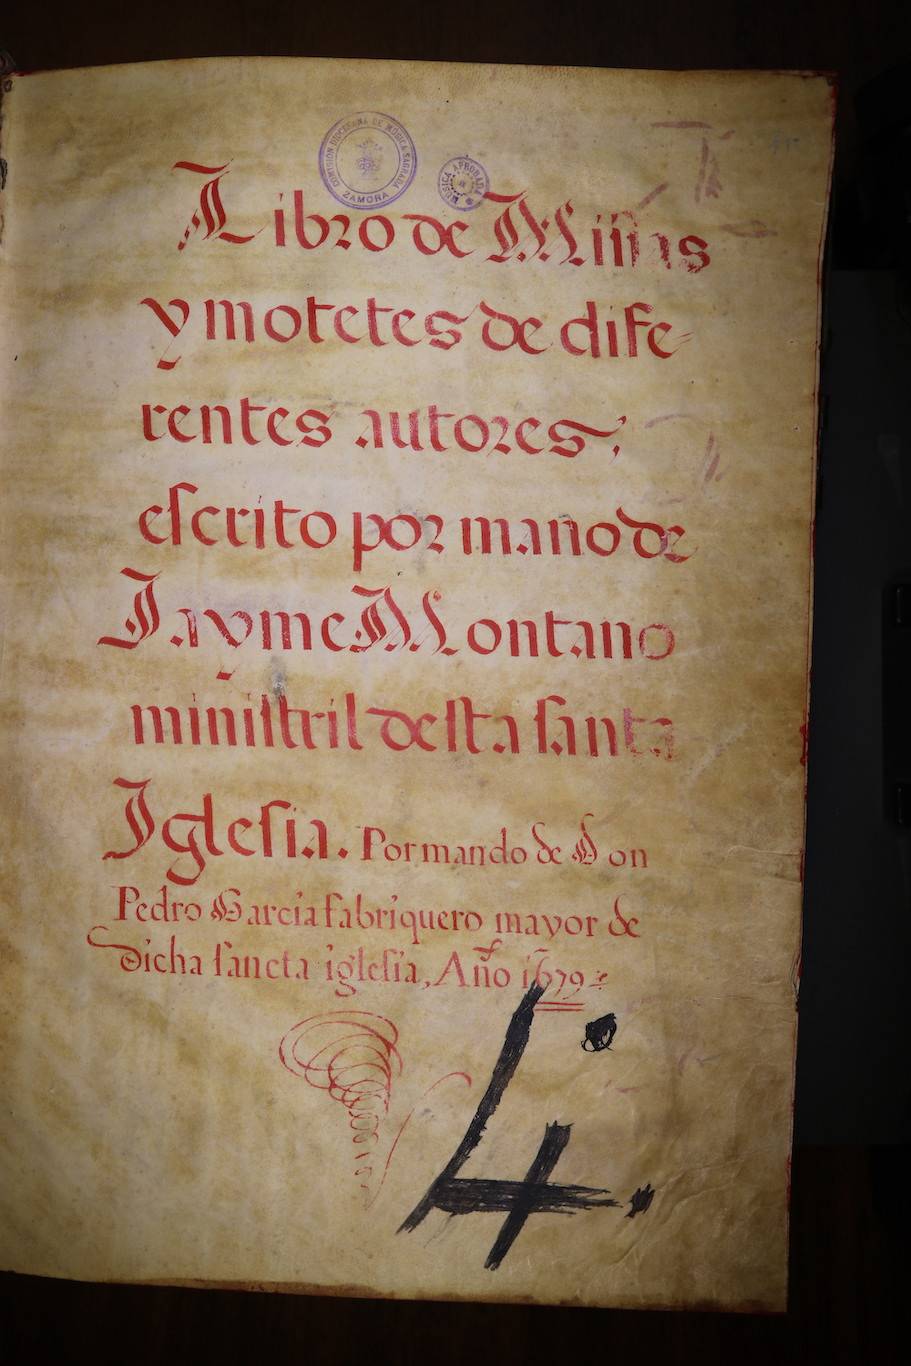 COMISIÓN DIOCESANA DE MÚSICA SAGRADA
ZAMORA
MUSICA APROBADA
Libro de Missas
y motetes de dife-
rentes autores;
escrito por mano de
Jayme Montano
ministril desta santa
Iglesia. Por mando de Don
Pedro Garcia fabriquero mayor de
dicha sancta iglesia, Año 1679
4.º